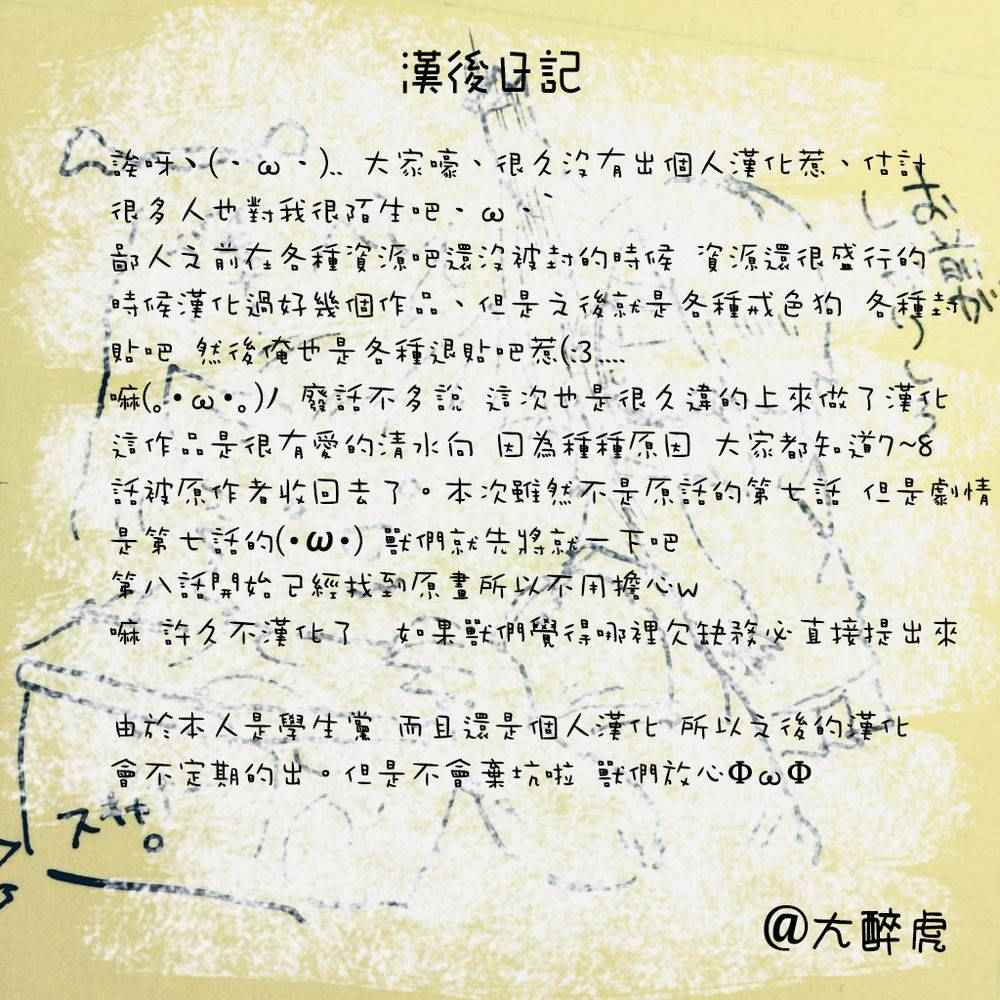 漢後日記
誒呀、(、ω、).. 大家嚎、很久沒有出個人漢化惹、估計
很多人也對我很陌生吧、ω、
鄙人之前在各種資源吧還沒被封的時候 資源還很盛行的
時候漢化過好幾個作品、但是之後就是各種戒色狗 各種封
貼吧 然後俺也是各種退貼吧惹(:3....
嘛(｡•ω•｡)ﾉ 廢話不多說 這次也是很久違的上來做了漢化
這作品是很有愛的清水向 因為種種原因 大家都知道7~8
話被原作者收回去了。本次雖然不是原話的第七話 但是劇情
是第七話的(•ω•) 獸們就先將就一下吧
第八話開始已經找到原畫所以不用擔心w
嘛 許久不漢化了 如果獸們覺得哪裡欠缺務必直接提出來
由於本人是學生黨 而且還是個人漢化 所以之後的漢化
會不定期的出。但是不會棄坑啦 獸們放心ΦωΦ
@大醉虎